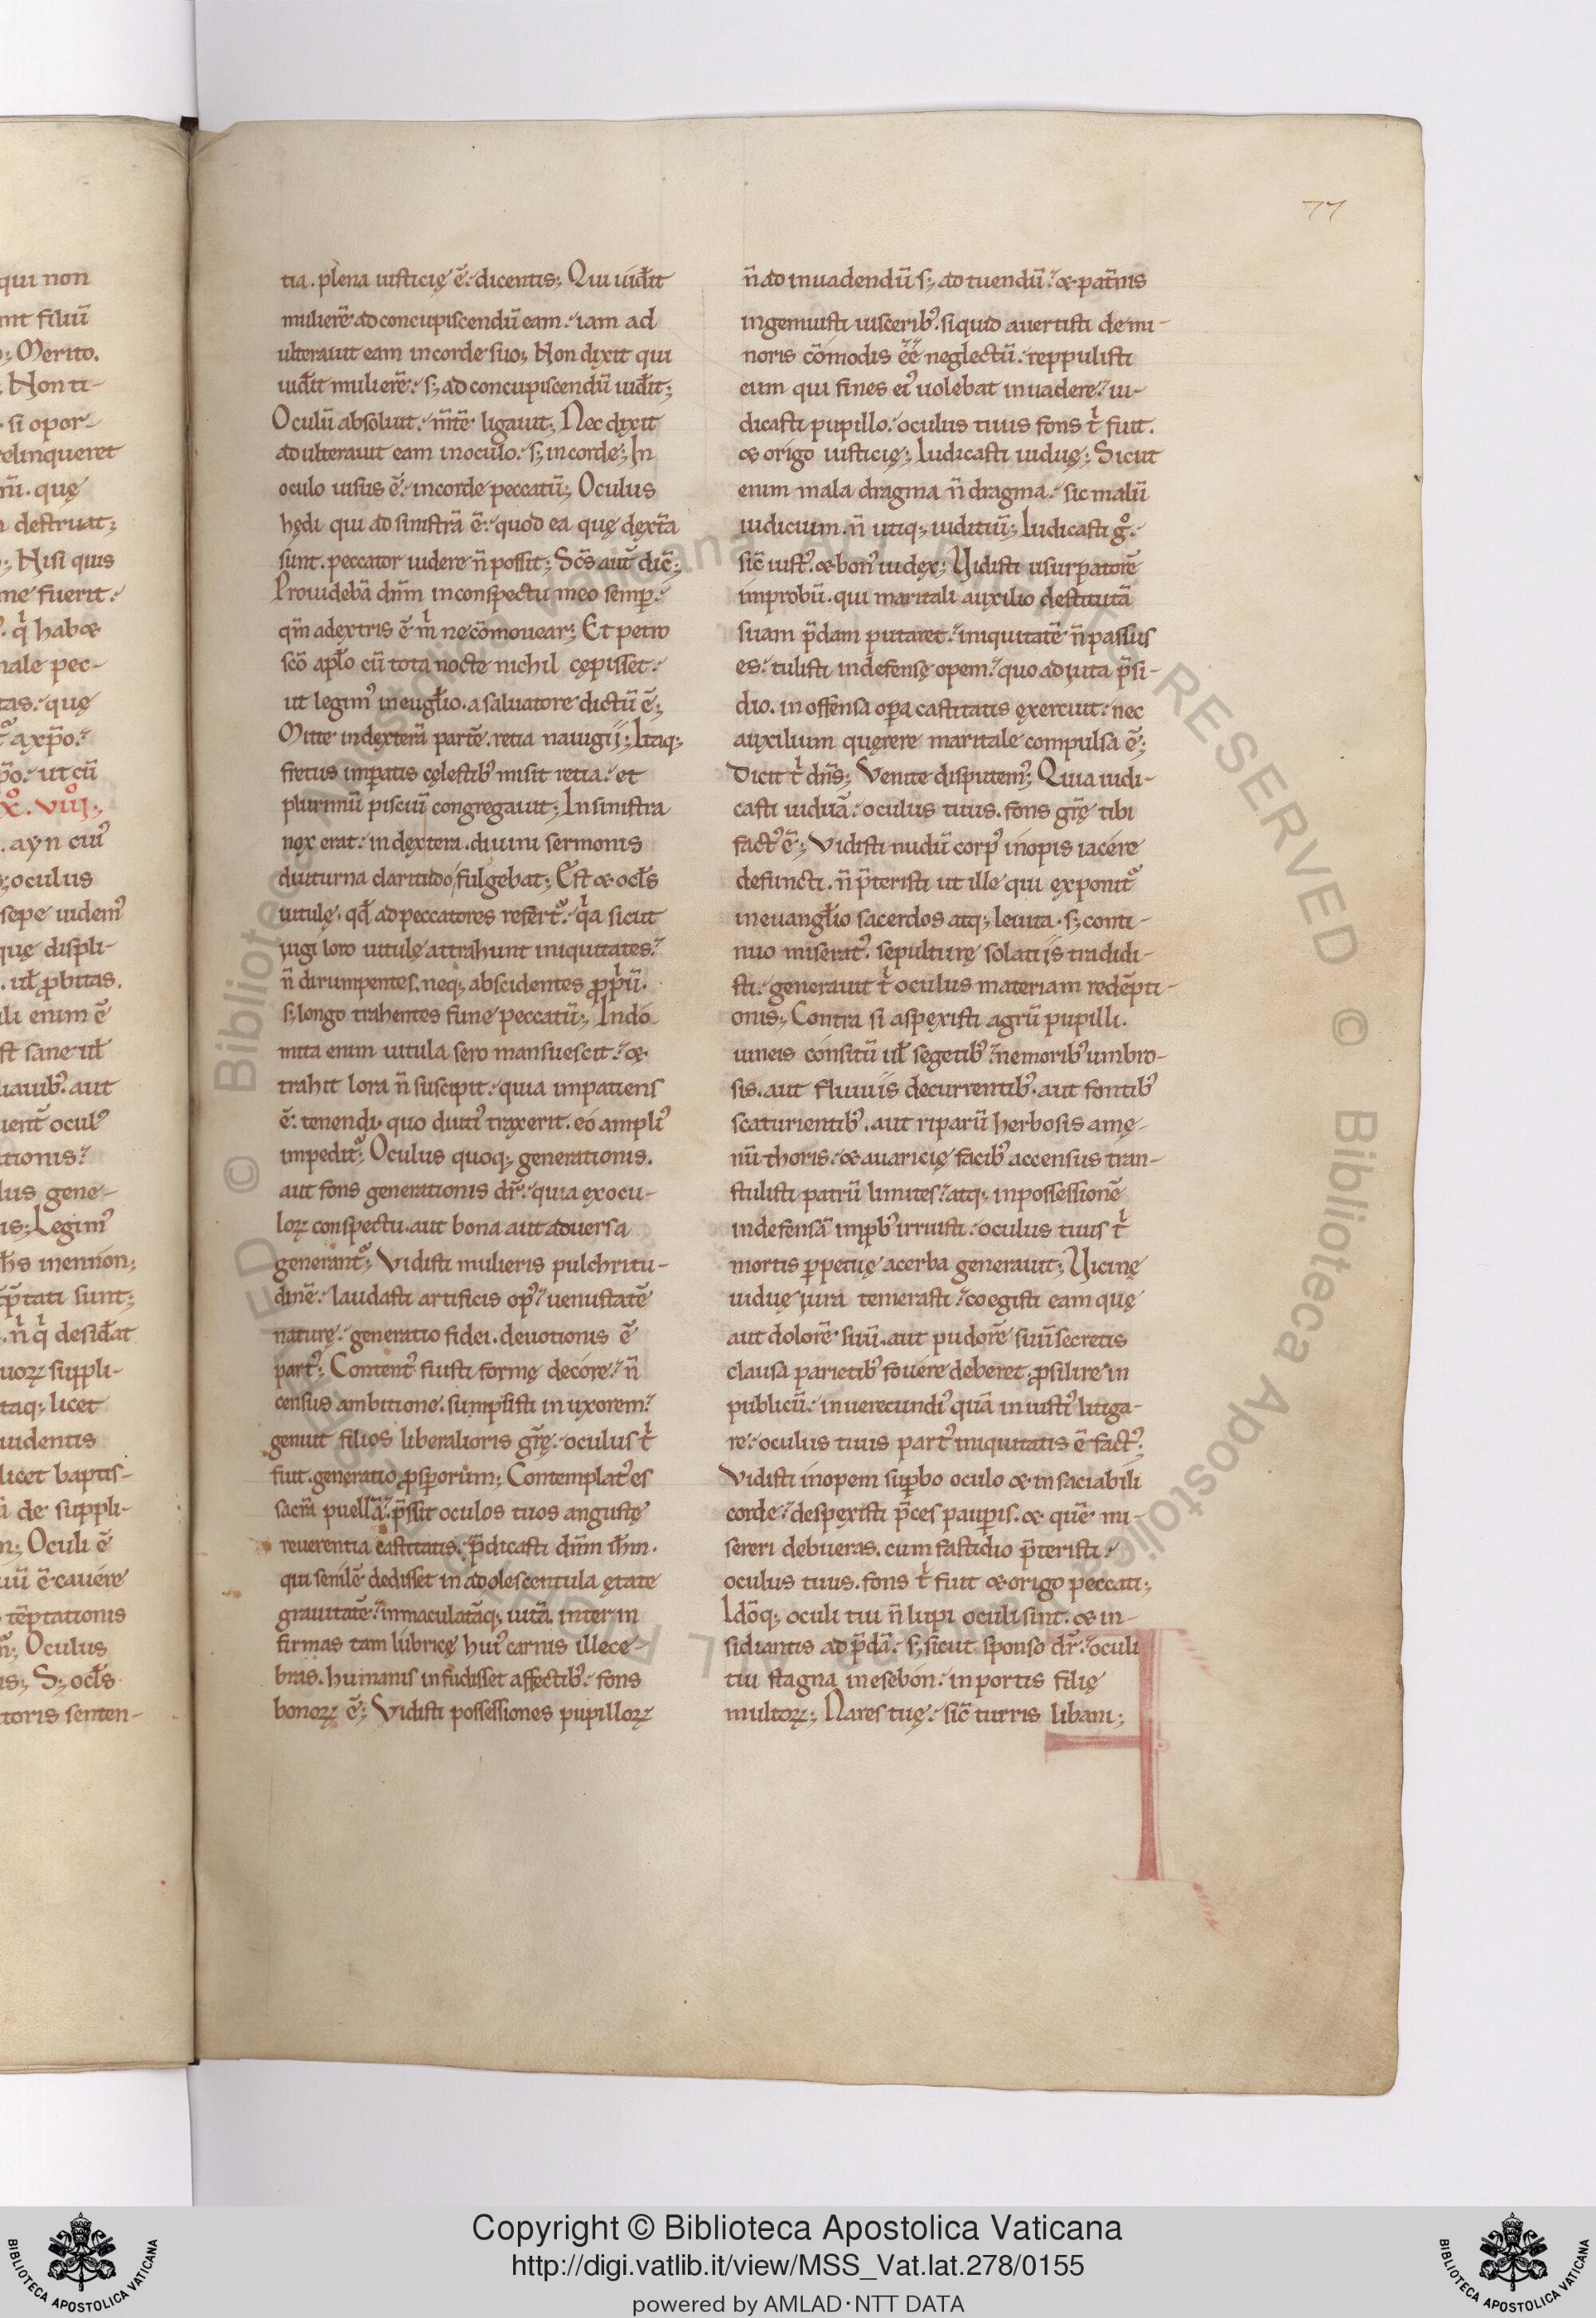 77
tia. plena iusticię ē. dicentis; Qui uid̄it
mulierē ad concupiscendū eam. iam ad
ulterauit eam in corde suo; Non dixit qui
uid̄it mulierē. s; ad concupiscendū uid̄it;
Oculū absoluit. m̄tē ligauit; Nec dixit
adulterauit eam in oculo. s; in corde; In
oculo uisus ē. in corde peccatū; Oculus
hędi qui ad sinistrā ē. quod ea quę dext̄a
sunt. peccator uidere n̄ possit; Sc̄s aut̄ dic̄;
Prouidebā dn̄m in conspectu meo semp̱.
qm̄ adextris ē m̍ ne cōmouear; Et petro
sc̄o apl̄o cū tota nocte nichil cępisset.
ut legim᾽ in eugl̄io. a saluatore dictū ē;
Mitte in dexterā partē. retia nauigii; Itaq;
fretus imp̱atis cęlestib᾽ misit retia. et
plurimū pisciū congregauit; In sinistra
nox erat. in dextera. diuini sermonis
diuturna claritudo fulgebat; Est & ocl̄s
uitulę. qd̄ ad peccatores refert᷑. q̍a sicut
iugi loro uitulę attrahunt iniquitates.
n̄ dirumpentes. neq; abscidentes ꝓp̍ū.
s; longo trahentes fune peccatū; Indo
mita enim uitula sero mansuescit. &
trahit lora n̄ suscipit. quia impatiens
ē. tenendi quo diuti᾽ traxerit. eo ampli᾽
impedit᷑; Oculus quoq; generationis.
aut fons generationis dr̄. quia ex ocu-
loꝝ conspectu. aut bona aut aduersa
generant᷑; Vidisti mulieris pulchritu-
dinē. laudasti artificis op᾽. uenustatē
naturę. generatio fidei. deuotionis ē
part᾽; Content᾽ fuisti formę decore. n̄
census ambitione. sumpsisti in uxorem.
genuit filios liberalioris gr̄ę. oculus t̍
fuit. generatio ꝓsp̱orum; Contemplat᾽ es
sacrā puellā. p̄ssit oculos tuos angustę
reuerentia castitatis. p̄dicasti dn̄m ih̄m.
qui senilē dedisset in adolescentula ętate
grauitatē. immaculatāq; uitā. inter in
firmas tam lubricę hui᾽ carnis illece-
bras. humanis infudisset affectib᾽. fons
bonoꝝ ē; Vidisti possessiones pupilloꝝ
n̄ ad inuadendū s; ad tuendū. & pat̄nis
ingemuisti uiscerib᾽. siquid auertisti de mi-
noris cōmodis ēē neglectū. reppulisti
eum qui fines ei᾽ uolebat inuadere. iu-
dicasti pupillo. oculus tuus fons t̍ fuit.
& origo iusticię; Iudicasti uiduę; Sicut
enim mala dragma n̄ dragma. sic malū
iudicium. n̄ utiq; iuditiū; Iudicasti g̊.
sic̄ iust᾽. & bon᾽ iudex; Vidisti usurpatorē
improbū. qui maritali auxilio destitutā
suam p̄dam putaret. iniquitatē n̄ passus
es. tulisti indefensę opem. quo adiuta p̄si-
dio. inoffensa op̱a castitatis exercuit. nec
auxilium quęrere maritale compulsa ē;
Dicit t̍ dn̄s; Venite disputem᾽; Quia iudi-
casti uiduā. oculus tuus. fons gr̄ę tibi
fact᾽ ē; Vidisti nudū corp᾽ inopis iacere
defuncti. n̄ p̄teristi ut ille qui exponit᷑
in euangl̄io sacerdos atq; leuita. s; conti-
nuo miserat᾽. sepulturę solatiis tradidi-
sti. generauit t̍ oculus materiam redēpti-
onis; Contra si aspexisti agrū pupilli.
uineis consitū ul̄ segetib᾽. nemorib᾽ umbro-
sis. aut fluuiis decurrentib᾽. aut fontib᾽
scaturientib᾽. aut riparū herbosis amę-
nū thoris. & auaricię facib᾽ accensus tran-
stulisti patrū limites. atq; in possessionē
indefensā imp̱b᾽ irruisti. oculus tuus t̍
mortis p̱petuę acerba generauit; Vicinę
uiduę iura temerasti. coegisti eam quę
aut dolorē suū. aut pudorē suū secretis
clausa parietib᾽ fouere deberet. ꝓsilire in
publicū. inuerecundi᾽ quā iniusti᾽ litiga-
re. oculus tuus part᾽ iniquitatis ē fact᾽;
Vidisti inopem sup̱bo oculo & insaciabili
corde. despexisti p̄ces paup̱is. & quē mi-
sereri debueras. cum fastidio p̄teristi.
oculus tuus. fons t̍ fuit & origo peccati;
Idōq; oculi tui n̄ lupi oculi sint. & in-
sidiantis ad p̄dā. s; sicut sponso dr̄. oculi
tui stagna in esebon. in portis filię
multoꝝ; Nares tuę. sic̄ turris libani;
Copyright © Biblioteca Apostolica Vaticana
http://digi.vatlib.it/view/MSS_Vat.lat.278/0155
powered by AMLAD·NTT DATA
BIBLIOTECA APOSTOLICA VATICANA
BIBLIOTECA APOSTOLICA VATICANA